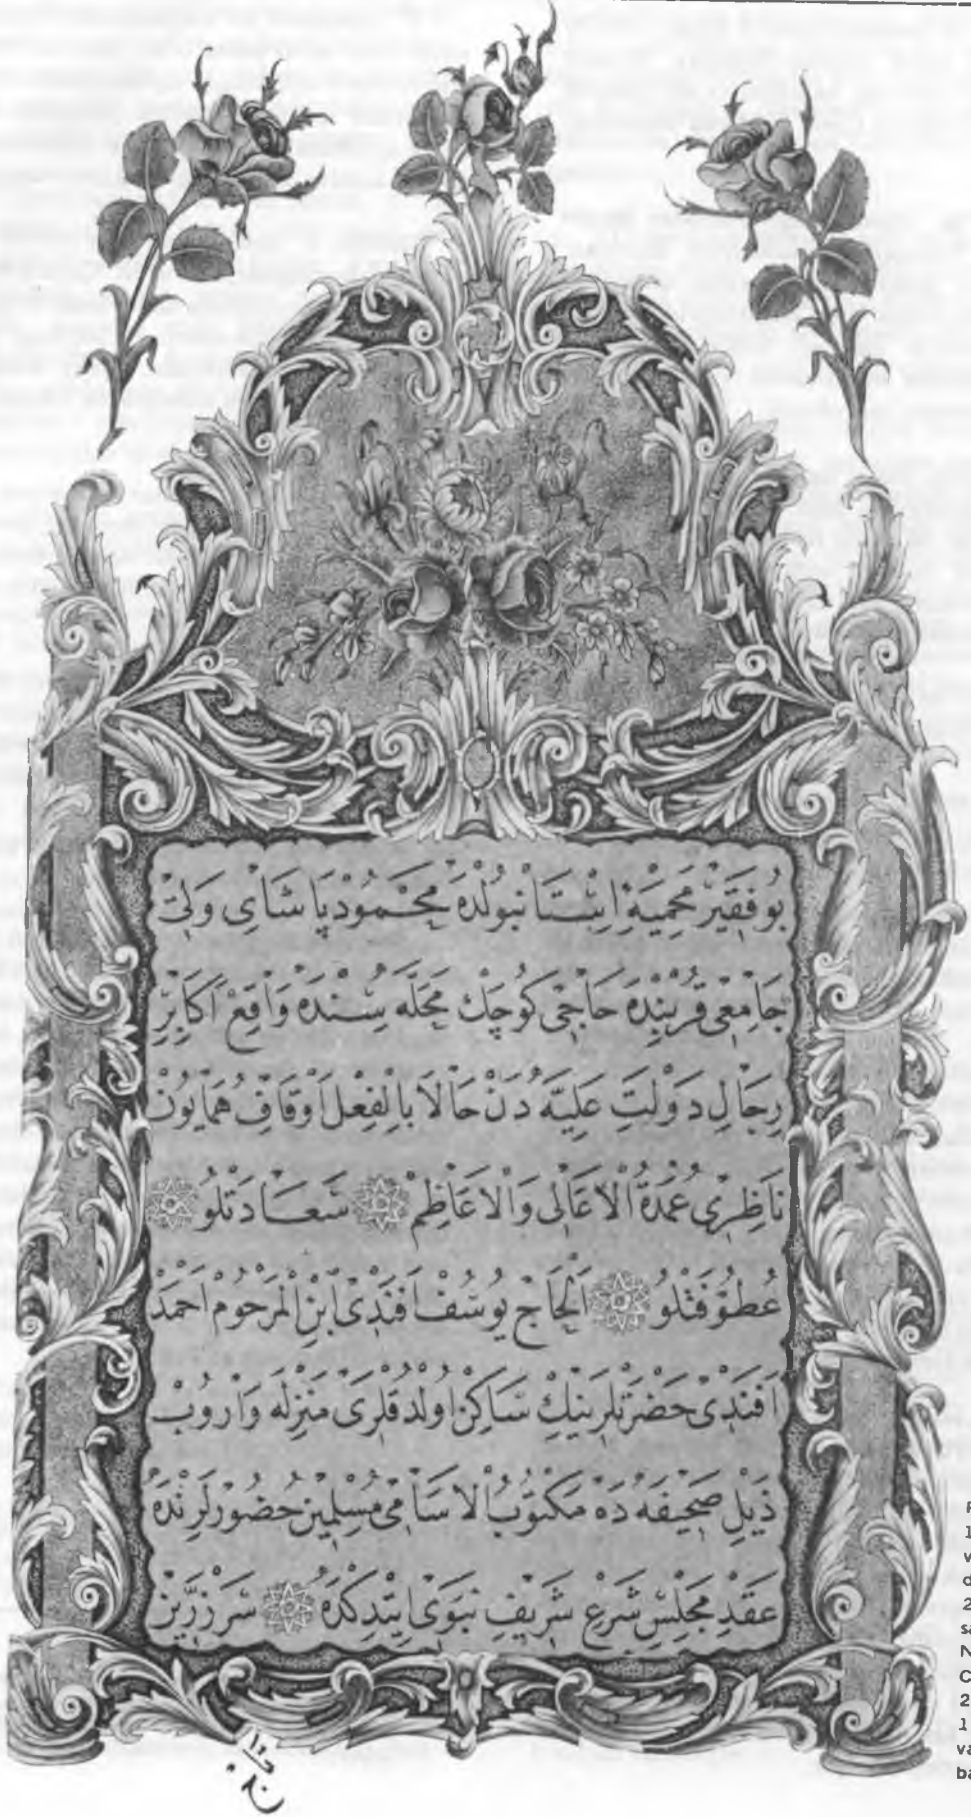 بُو فَقِيْر مَحْمِيَّهٔ اِسْتَانْبُولْدَه مَحْمُودْ پَاشَاىِ وَلِىْ
جَامِعِى قُرْبِنْدَه حَاجِى كُوچَكْ مَحَلَّه سِنْدَه وَاقِعْ اَكَابِرِ
رِجَالِ دَوْلَتِ عَلِيَّه دَنْ حَالَا بِالْفِعْلْ اَوْقَافِ هُمَايُونْ
نَاظِرِى عُمْدَةُ الْاَعَالِى وَالْاَعَاظِمْ سَعَادَتْلُو
عُطُوفَتْلُو اَلْحَاجْ يُوسُفْ اَفَنْدِى اِبْنِ الْمَرْحُومْ اَحْمَدْ
اَفَنْدِى حَضْرَتْلَرِينِكْ سَاكِنْ اولْدُقْلَرِى مَنْزِلَه وَارُوبْ
ذَيْلِ صَحِيفَه دَه مَكْتُوبُ الْاَسَامِى مُسْلِمِينْ حُضُورْلَرِنْدَه
عَقْدِ مَجْلِسِ شَرْعِ شَرِيفِ نَبَوِى اِيتْدِكْدَه